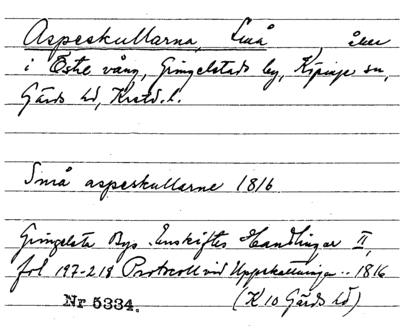 Aspeskullarna, Små åker
i Östre vång, Gringelstads by, Köpinge sn,
Gärds hd, Krstd. l.
Små aspeskullarne 1816
Gringelsta Bys Enskiftes Handlingar II,
fol 197-218 Protocoll vid Uppskattningen .. 1816
(K 10 Gärds hd)
Nr 5334.